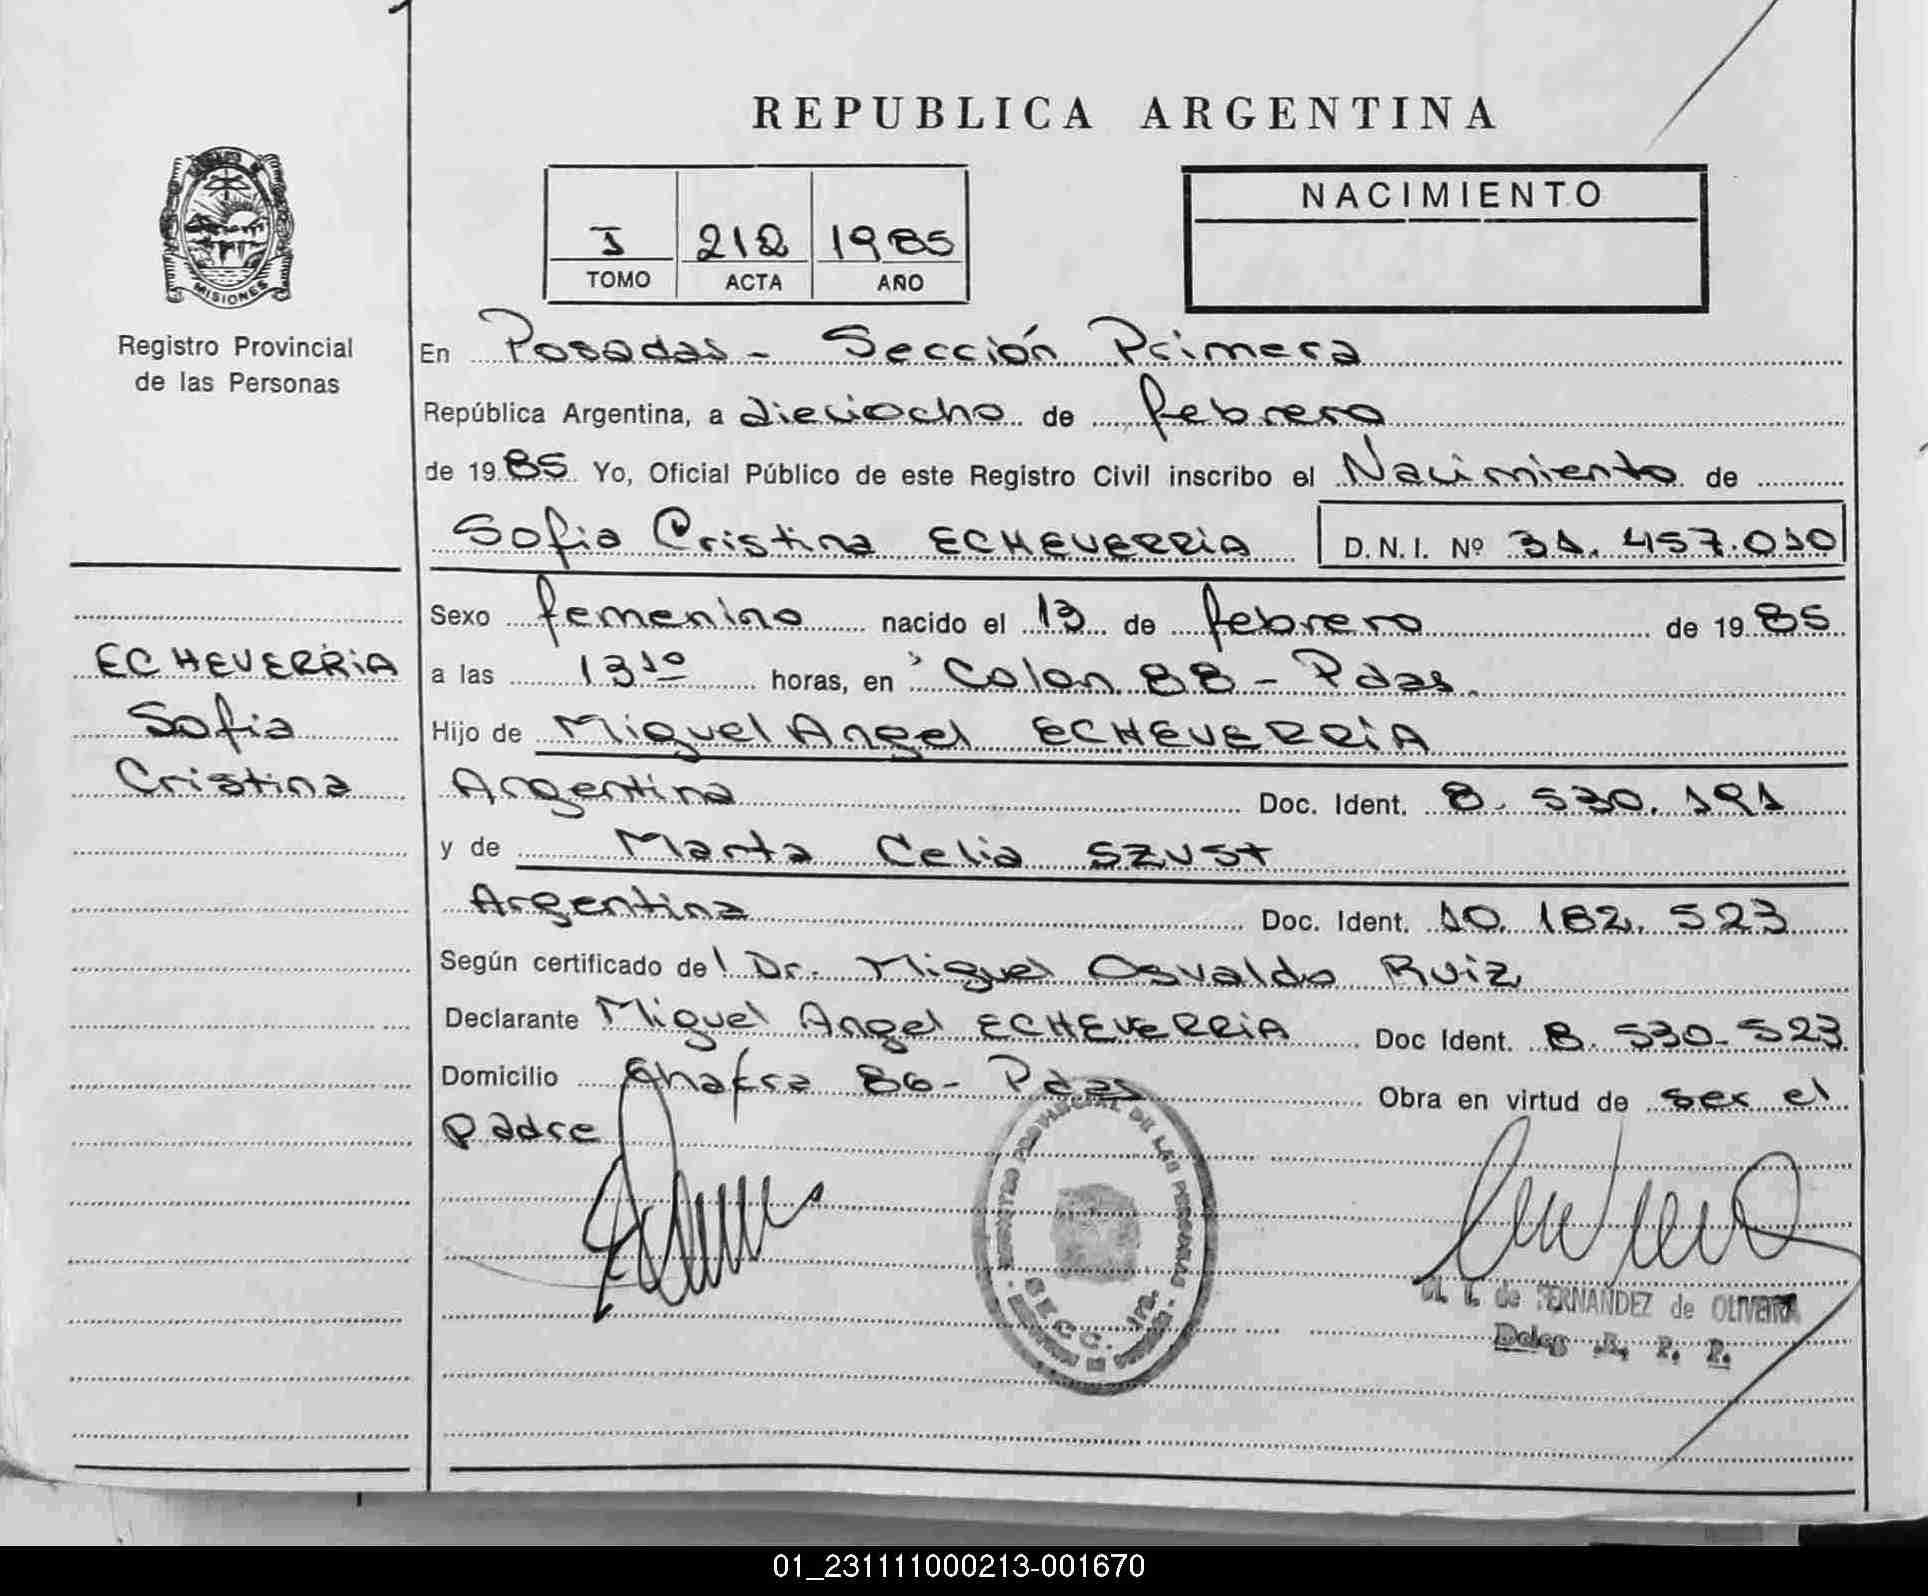 REPUBLICA ARGENTINA
MISIONES
Registro Provincial
de las Personas
I 212 1985
TOMO ACTA AÑO
NACIMIENTO
En Posadas - Sección Primera
República Argentina, a dieciocho de febrero
de 1985 Yo, Oficial Público de este Registro Civil inscribo el Nacimiento de
Sofia Cristina ECHEVERRIA D.N.I. Nº 31.457.010
Sexo femenino nacido el 13 de febrero de 1985
a las 13 10 horas, en Colon 88 - Pdas.
Hijo de Miguel Angel ECHEVERRÍA
Argentina Doc. Ident. 8.530.191
y de Marta Celia SZUST
Argentina Doc. Ident. 10.182.523
Según certificado del Dr. Miguel Osvaldo Ruiz
Declarante Miguel Angel ECHEVERRIA Doc Ident. 8.530-523
Domicilio 86 - Pdas Obra en virtud de ser el
padre
ECHEVERRIA
Sofia
Cristina
REGISTRO PROVINCIAL DE LAS PERSONAS
SECC. 1ra.
de FERNANDEZ de OLIVEIRA
Deleg. R. P. P.
01_231111000213-001670